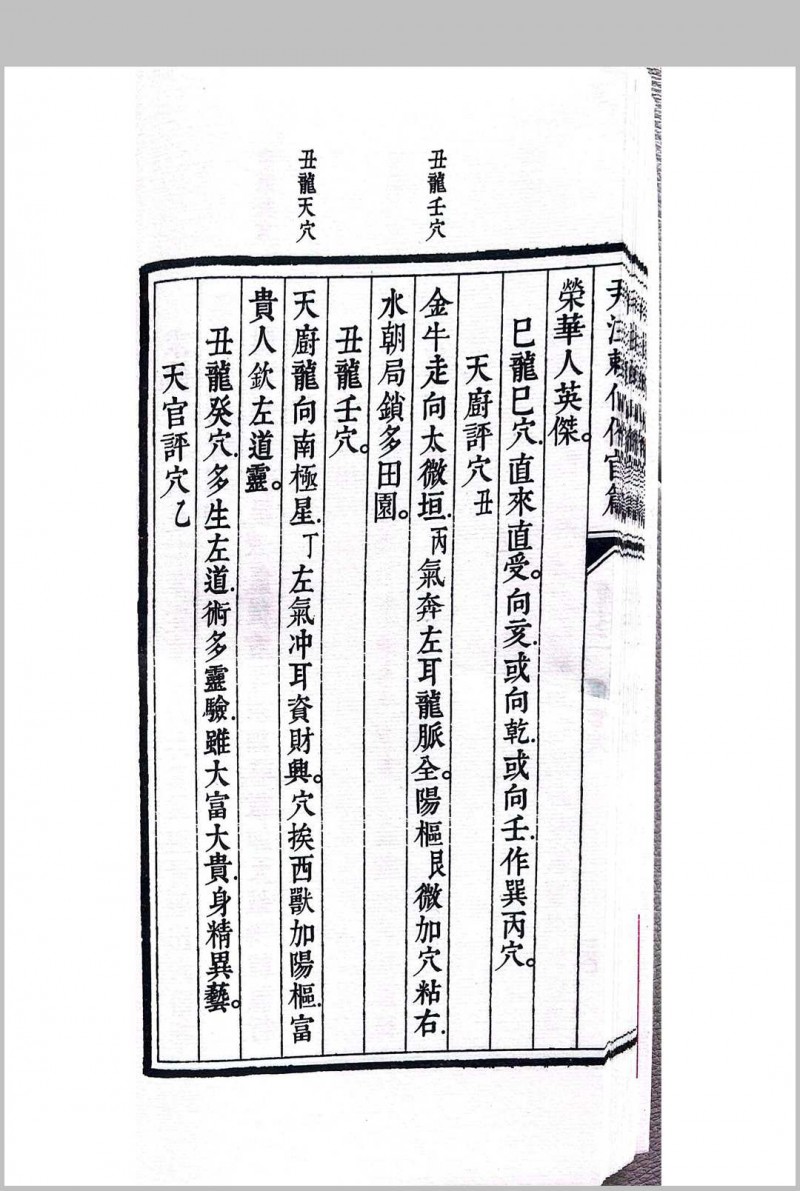 榮華人英傑。
巳龍巳穴.直來直受。向亥.或向乾.或向壬.作巽丙穴。
天廚評穴丑
丑龍壬穴
金牛走向太微垣.丙氣奔左耳龍脈全。陽樞艮微加穴粘右.
水朝局鎖多田園。
丑龍壬穴。
丑龍天穴
天廚龍向南極星.丁左氣冲耳資財興。穴挨西獸加陽樞.富
貴人欽左道靈。
丑龍癸穴.多生左道.術多靈驗.雖大富大貴.身精異藝。
天官評穴乙